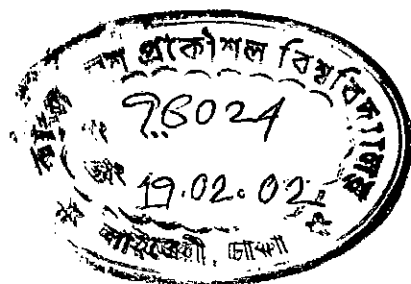 প্রকৌশল বিশ্ববিদ্যালয়
নং 96024
তাং 19.02.02
লাইব্রেরী, ঢাকা